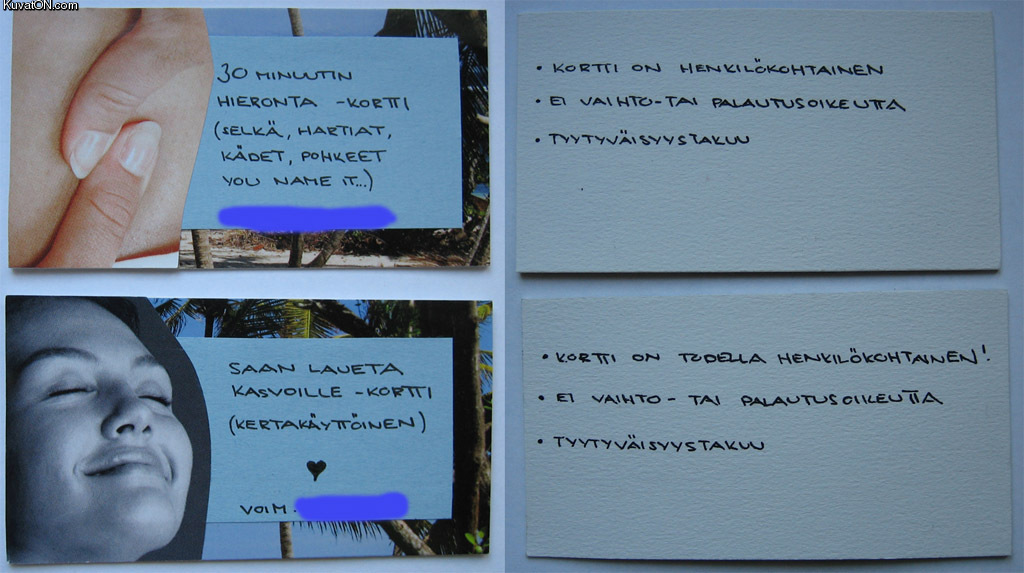 KuvatON.com
30 MINUUTIN
HIERONTA -KORTTI
(SELKÄ, HARTIAT,
KÄDET, POHKEET
YOU NAME IT...)
• KORTTI ON HENKILÖKOHTAINEN
• EI VAIHTO- TAI PALAUTUSOIKEUTTA
• TYYTYVÄISYYSTAKUU
SAAN LAUETA
KASVOILLE -KORTTI
(KERTAKÄYTTÖINEN)
♥
VOIM.
• KORTTI ON TODELLA HENKILÖKOHTAINEN!
• EI VAIHTO- TAI PALAUTUSOIKEUTTA
• TYYTYVÄISYYSTAKUU